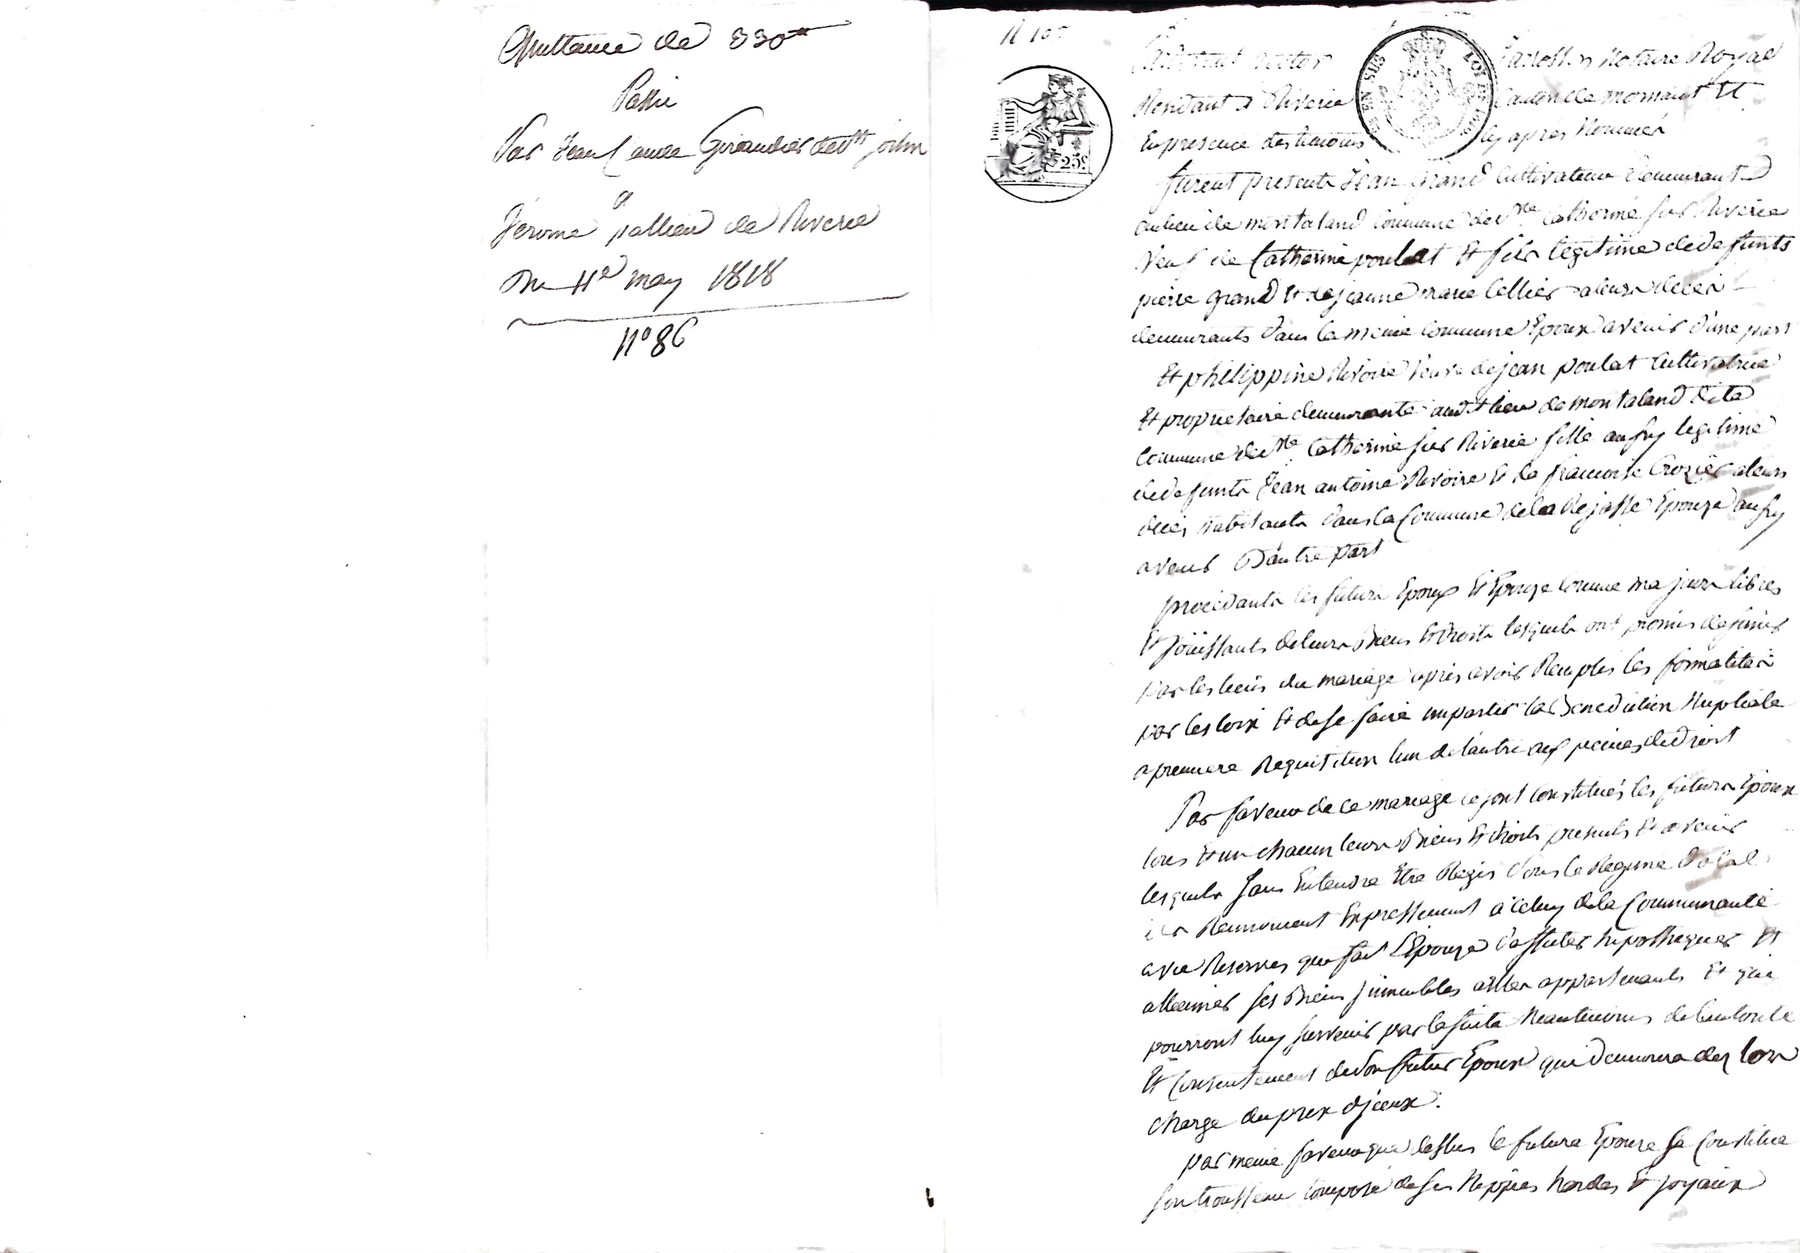 Quittance de 330#
Passée
Par Jean Claude Girandier de St
a
Jérome pallieu de Riverie
Du 11e may 1818
N° 86
N 10
25c
Pardevant notaire Royal
Residant à Riverie Canton de mornant Et
En presence des temoins cy après Nommés
furent presents Jean Grand Cultivateur Demeurant
au lieu de montaland Commune de Ste Catherine sur Riverie
Veuf de Catherine poulat Et fils legitime de defunts
pierre Grand Et de jeanne marie Cellier a leurs deces
demeurants dans la meme Commune Epoux avenir d'une part
Et philippine Rivoire Veuve de jean poulat Cultivatrice
Et proprietaire demeurante audit lieu de montaland dite
Commune de Ste Catherine sur Riverie fille aussy legitime
de defunts Jean antoine Rivoire Et de francoise Crozier a leurs
deces habitants dans la Commune de la Rajasse Epouze aussy
avenir D'autre part
procedants les futurs Epoux Et Epouze Comme majeurs libres
Et jouissants de leurs Biens Et Droits lesquels ont promis de s'unir
par les liens du mariage après avoir Remplis les formalités
par les loix Et de se faire impartir la Benediction Nuptiale
a premiere Requisition l'un de l'autre aux peines de Droit
Par faveur de ce mariage ce sont Constitués les futurs Epoux
tous Et un chacun leurs Biens Et droits presents Et avenir
lesquels sans Entendre Etre Regis sous le Regime Dotal
ils Renoncent Expressement a celuy de la Communauté
avec Reserves que fait L'Epouze hipothequer Et
alliener ses Biens immeubles a Elle appartenants Et qui
pourront luy survenir par la suite Neantmoins de l'autorité
Et Consentement de son futur Epoux qui Demeurera des lors
charge du prix d'jceux.
par meme faveur que dessus la future Epouze se Constitue
son trousseau Composé de ses Nippes hardes Et joyaux